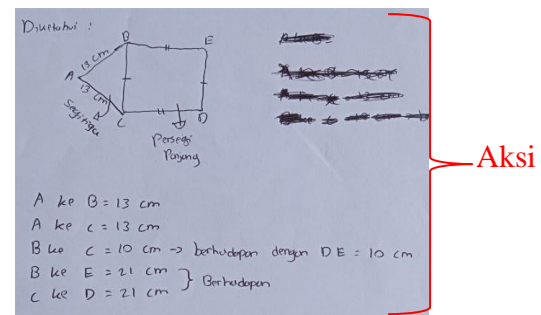 Diketahui :
B
E
13 cm
A
13 cm
Segitiga
C
D
Persegi
Panjang
A ke B = 13 cm
A ke C = 13 cm
B ke C = 10 cm → berhadapan dengan DE = 10 cm
B ke E = 21 cm
C ke D = 21 cm
} Berhadapan
Aksi